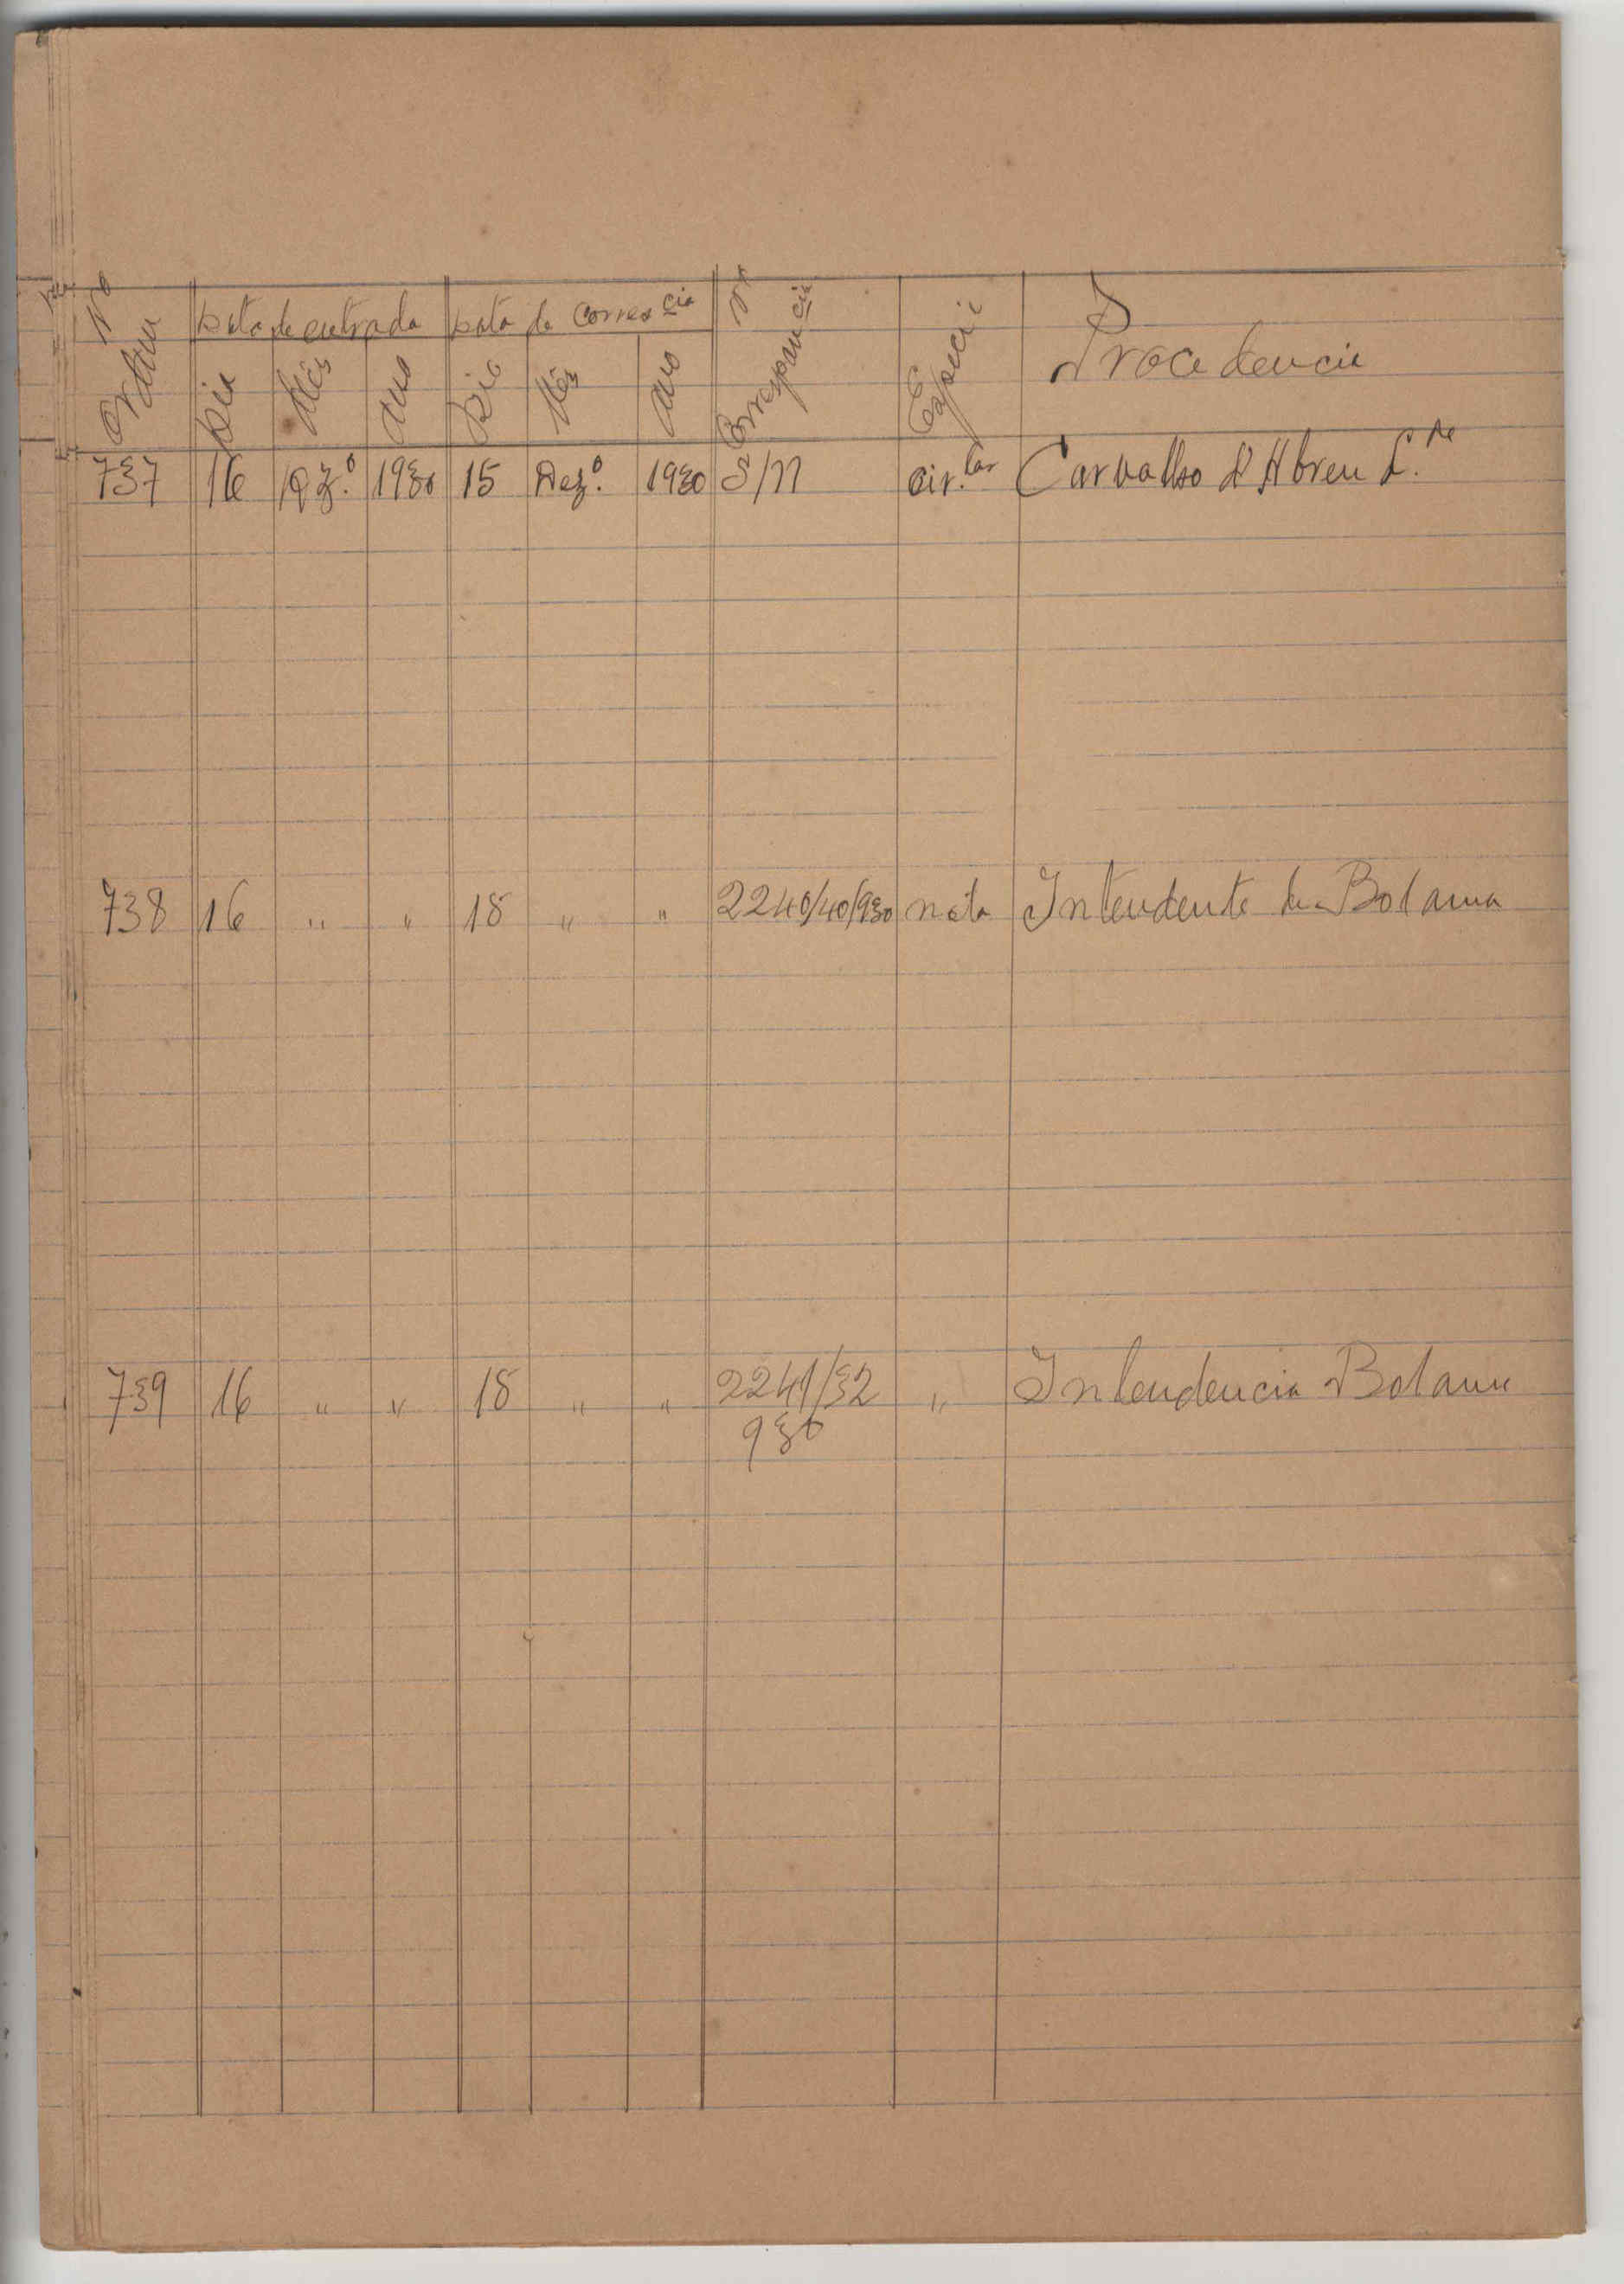 Nº Ordem Data de entrada Data de Corres.cia Nº Correspon.cia Especie Procedencia
Dia Mês Ano Dia Mês Ano
737 16 Dzº. 1930 15 Dezº. 1930 S/N Cir.lar Carvalho d'Abreu L.de
738 16 " " 18 " " 2240/40/930 nota Intendente de Bolama
739 16 " " 18 " " 2241/32 " Intendencia Bolama
930